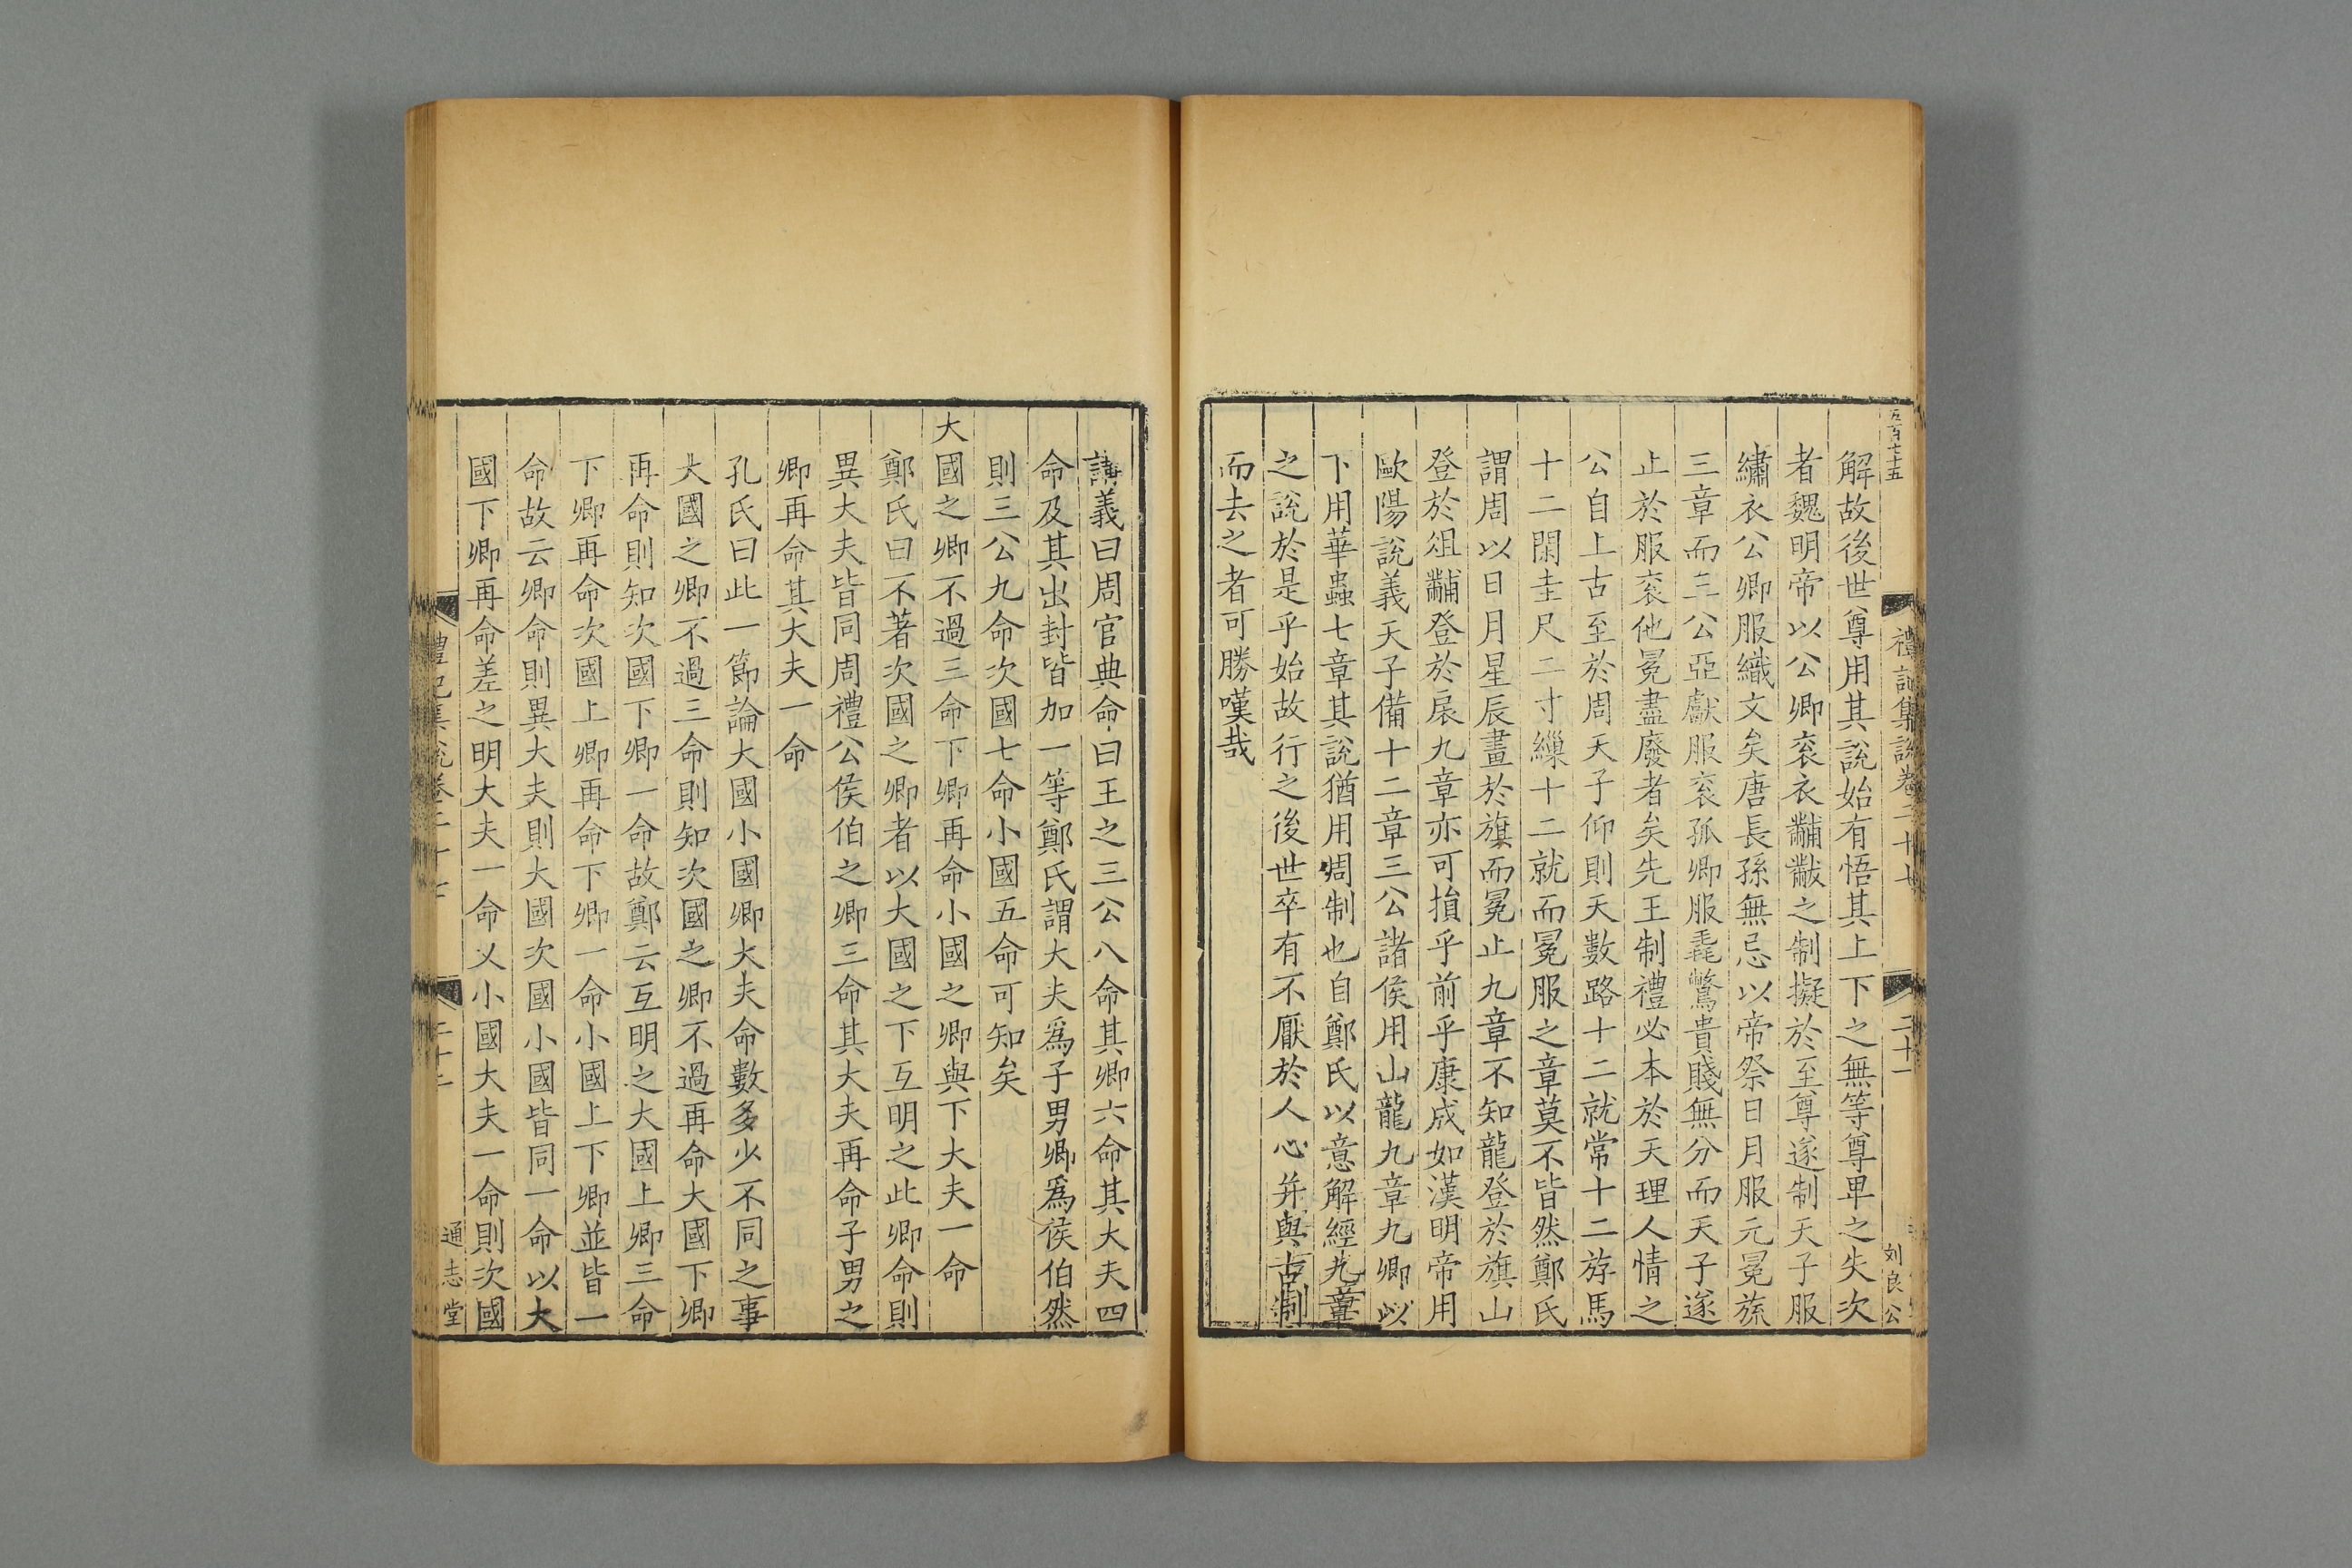 五百七十五
禮記集說卷二十七
二十一
刘良公
解故後世尊用其說始有悟其上下之無等尊卑之失次
者魏明帝以公卿衮衣黼黻之制擬於至尊遂制天子服
繡衣公卿服織文矣唐長孫無忌以帝祭日月服元冕旒
三章而三公亞獻服衮孤卿服毳鷩貴賤無分而天子遂
止於服衮他冕盡廢者矣先王制禮必本於天理人情之
公自上古至於周天子仰則天數路十二就常十二斿馬
十二閑圭尺二寸繅十二就而冕服之章莫不皆然鄭氏
謂周以日月星辰畫於旗而冕止九章不知龍登於旗山
登於俎黼登於扆九章亦可損乎前乎康成如漢明帝用
歐陽說義天子備十二章三公諸侯用山龍九章九卿以
下用華蟲七章其說猶用周制也自鄭氏以意解經九章
之說於是乎始故行之後世卒有不厭於人心并與古制
而去之者可勝嘆哉
講義曰周官典命曰王之三公八命其卿六命其大夫四
命及其出封皆加一等鄭氏謂大夫爲子男卿爲侯伯然
則三公九命次國七命小國五命可知矣
大國之卿不過三命下卿再命小國之卿與下大夫一命
鄭氏曰不著次國之卿者以大國之下互明之此卿命則
異大夫皆同周禮公侯伯之卿三命其大夫再命子男之
卿再命其大夫一命
孔氏曰此一節論大國小國卿大夫命數多少不同之事
大國之卿不過三命則知次國之卿不過再命大國下卿
再命則知次國下卿一命故鄭云互明之大國上卿三命
下卿再命次國上卿再命下卿一命小國上下卿並皆一
命故云卿命則異大夫則大國次國小國皆同一命以大
國下卿再命差之明大夫一命乂小國大夫一命則次國
禮記集說卷二十七
二十二
通志堂